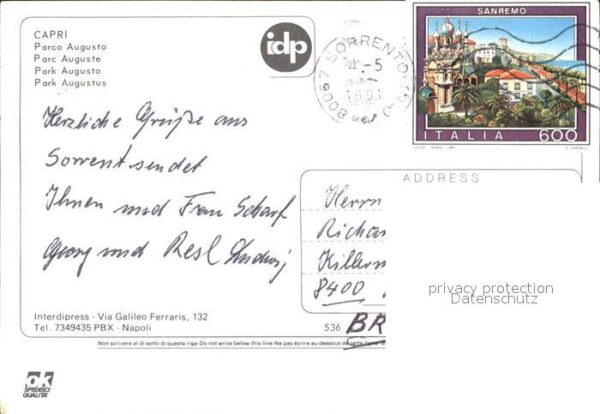 CAPRI
Parco Augusto
Parc Auguste
Park Augusto
Park Augustus
idp
80067 SORRENTO (NA)
SANREMO
ITALIA 600
Herzliche Grüße aus
Sorrent sendet
Ihnen und Frau Scharf
Georg und Resl
ADDRESS
Herrn
Richar
Killerm
8400
privacy protection
Datenschutz
Interdipress - Via Galileo Ferraris, 132
Tel. 7349435 PBX - Napoli
536
BR
Non scrivere al di sotto di questa riga-Do not write below this line-Ne pas écrire au dessous de cette ligne
ok
SPEDISCI
QUALITA'